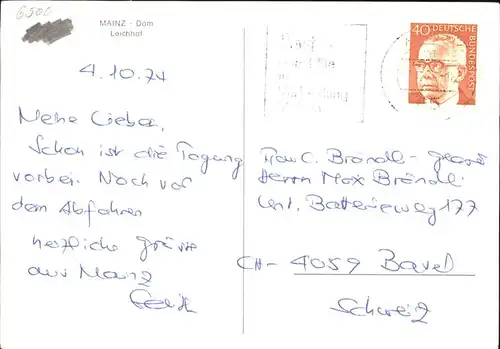 6500
MAINZ - Dom
Leichhof
40 DEUTSCHE BUNDESPOST
4.10.74
Meine Lieben,
Schon ist die Tagung
vorbei. Noch vor
dem Abfahren
herzliche Grüsse
aus Mainz
Frau C. Brändli -
Herrn Max Brändli
Unt. Batterieweg 177
CH - 4059 Basel
Schweiz